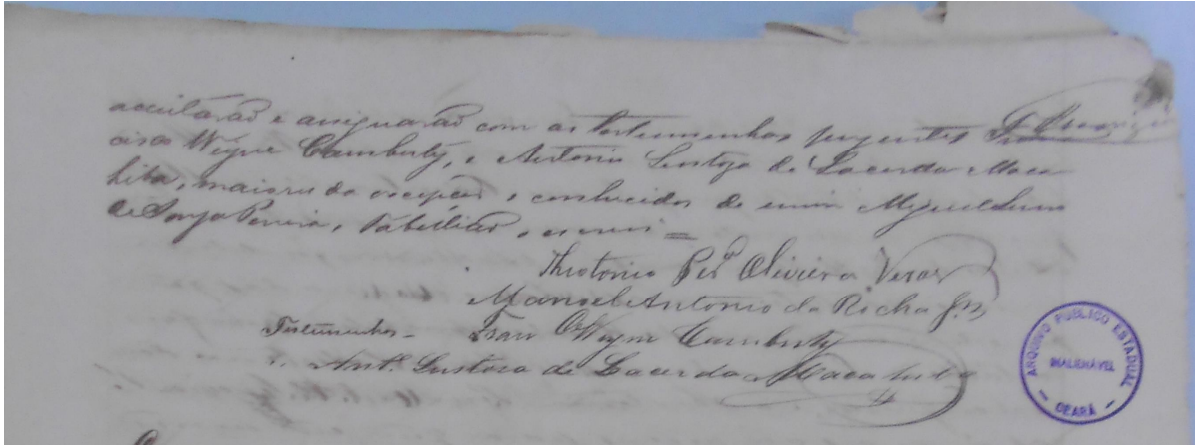 acceitárão e assignarão com as testemunhas prezentes Fran
cisco Wigne Cambuty, e Antonio Lustoza de Lacerda Maca
hiba, maiores de excepção, conhecidos de mim Miguel
de Souza Pereira, Tabellião, escrevi =
Theotonio Per.ª Oliveira Veras
Manoel Antonio da Rocha Jnr
Testemunhas - Fran.co Wigne Cambuty
" Ant.º Lustosa de Lacerda Macahiba
ARQUIVO PÚBLICO ESTADUAL
INALIENÁVEL
- CEARÁ -